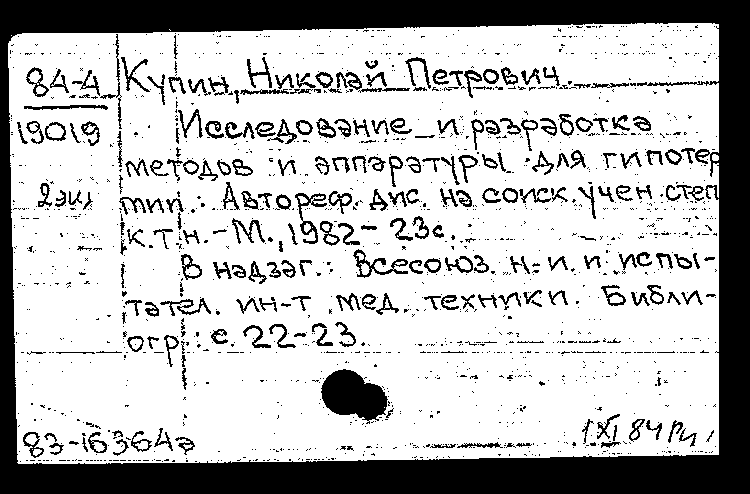 84-4 Купин, Николай Петрович.
19019 Исследование и разработка
методов и аппаратуры для гипотер
2 экз мии.: Автореф. дис. на соиск. учен. степ
к.т.н. - М., 1982 - 23с.
В надзаг.: Всесоюз. н.-и. и испы-
тател. ин-т мед. техники. Библи-
огр.: с. 22-23.
83-16364а 1 XI 84